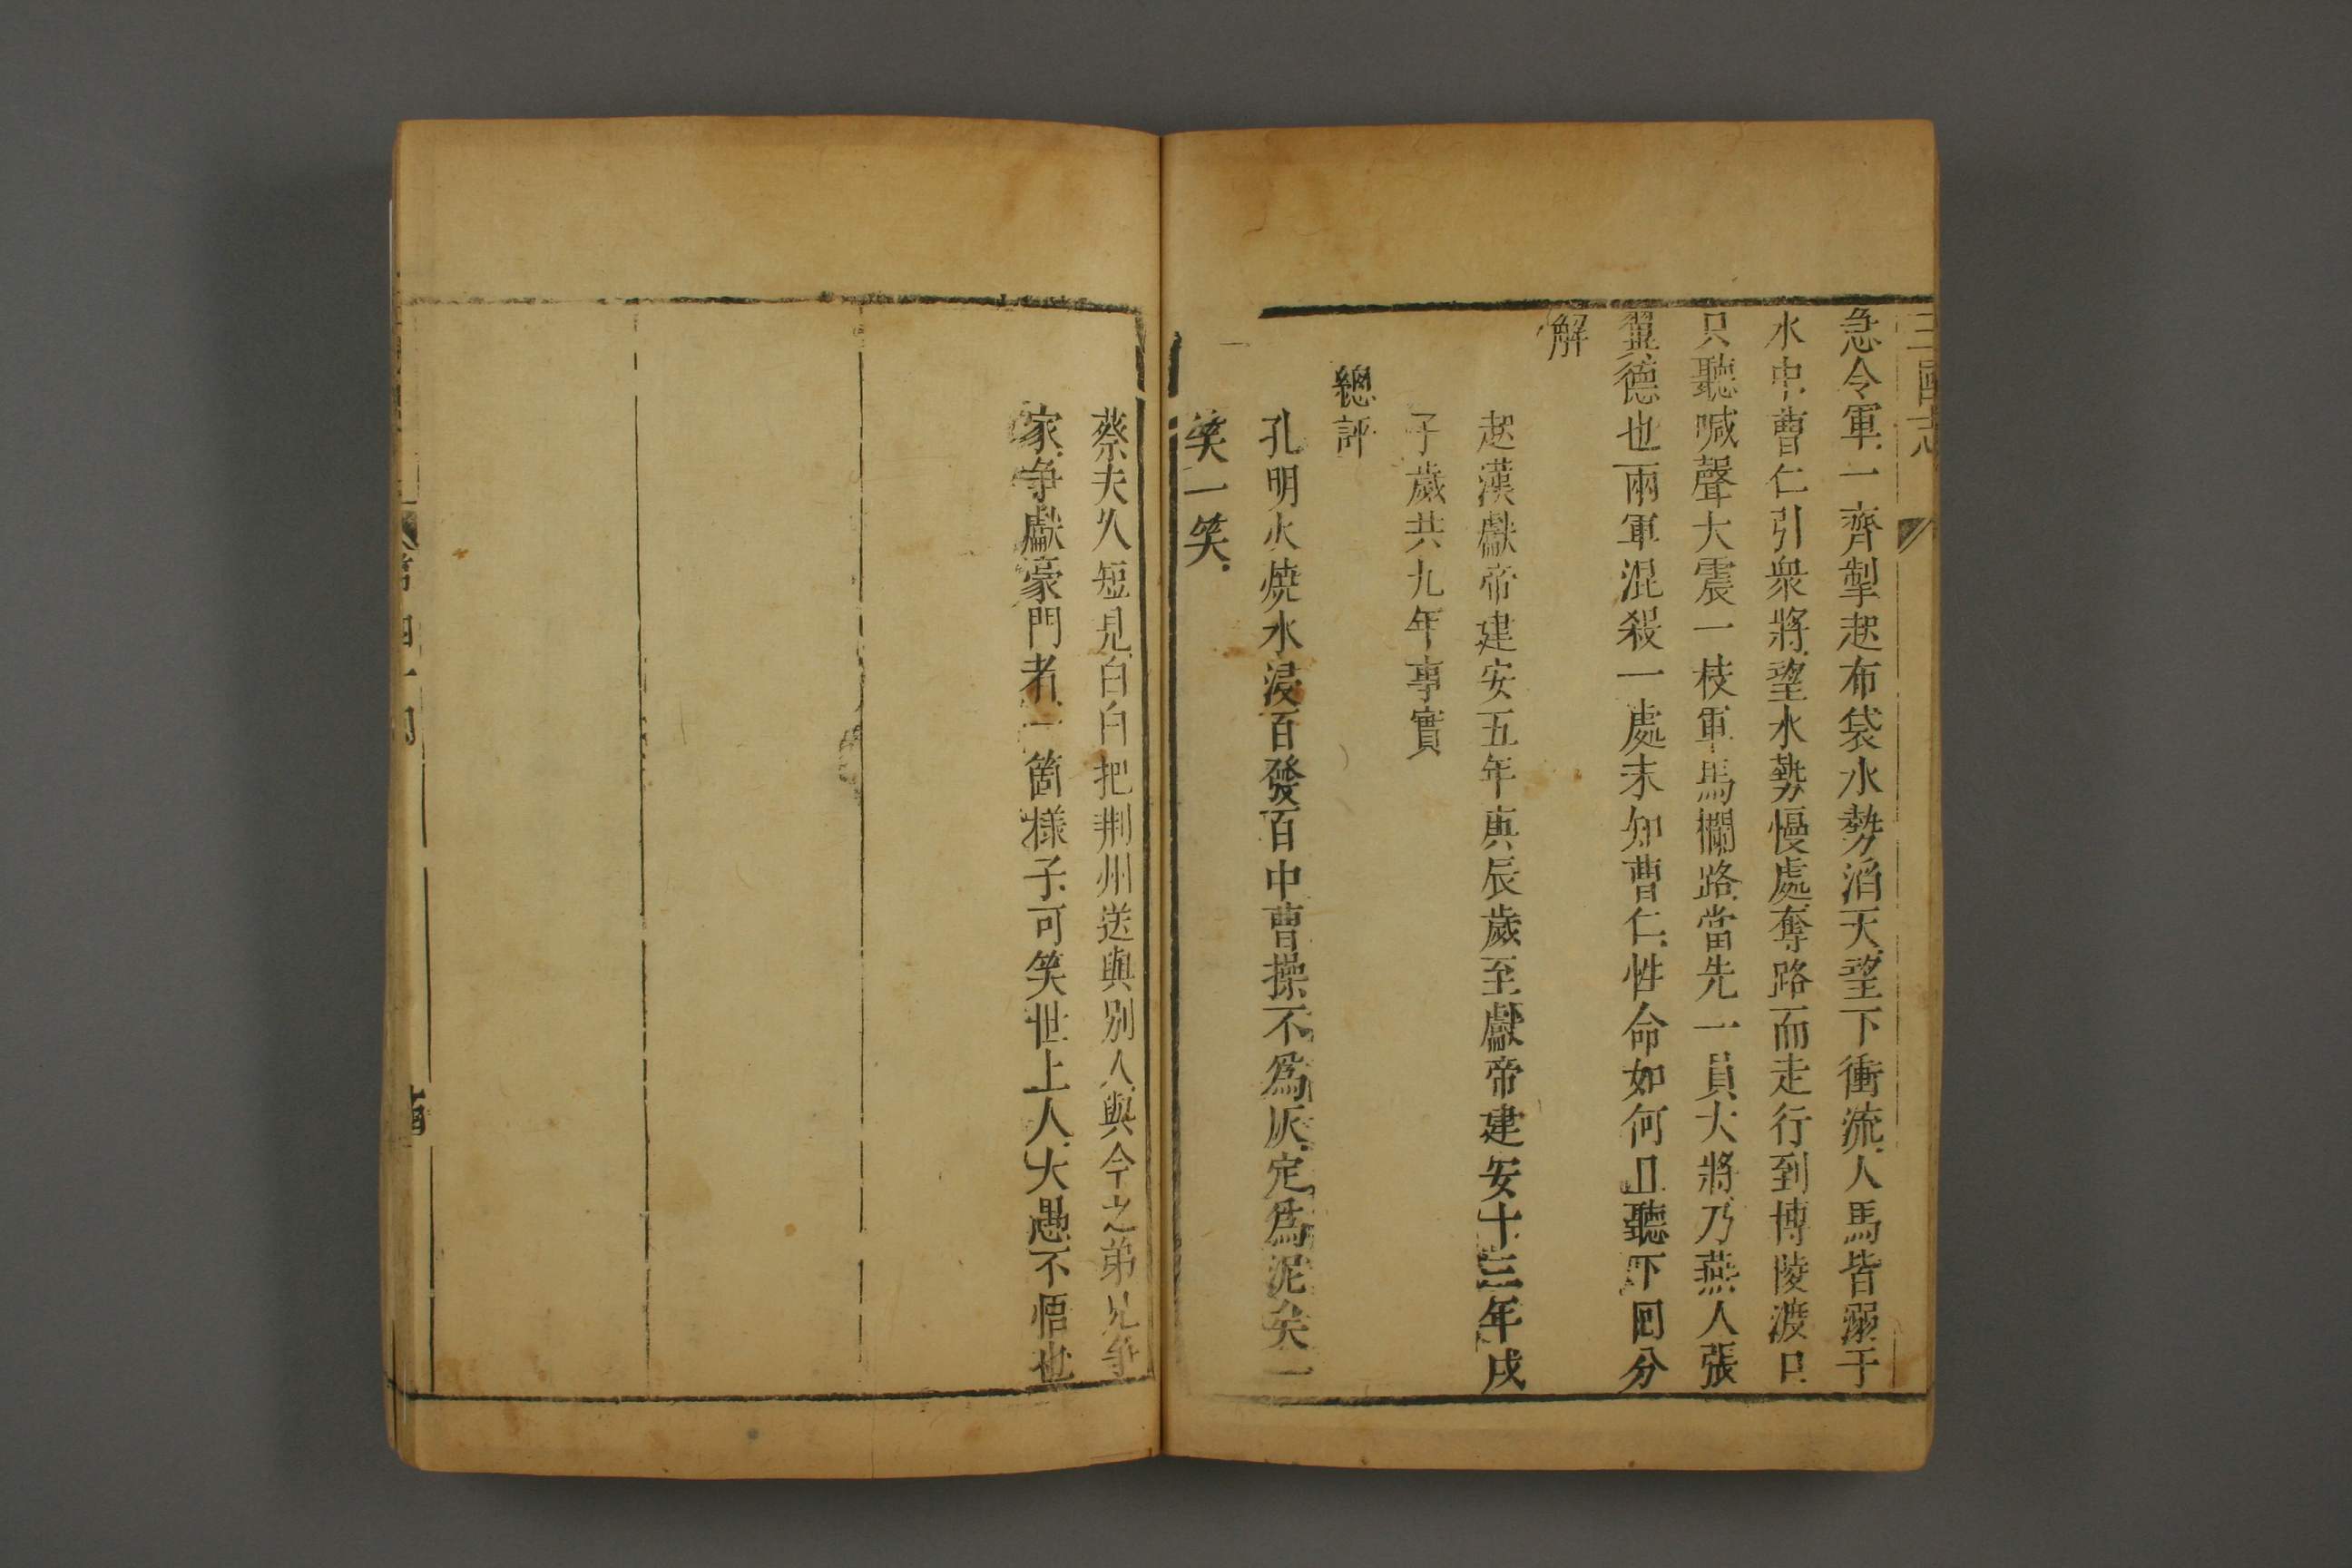 三國志
急令軍一齊掣起布袋水勢滔天望下衝流人馬皆溺于
水中曹仁引衆將望水勢慢處奪路而走行到博陵渡口
只聽喊聲大震一枝軍馬攔路當先一員大將乃燕人張
翼德也兩軍混殺一處未知曹仁性命如何且聽下回分
解
起漢獻帝建安五年庚辰歲至獻帝建安十三年戊
子歲共九年事實
總評
孔明火燒水浸百發百中曹操不爲灰定爲泥矣一
笑一笑
蔡夫人短見白白把荆州送與別人與今之弟兄爭
家爭獻豪門者一箇樣子可笑世上人大愚不悟也
第四十回